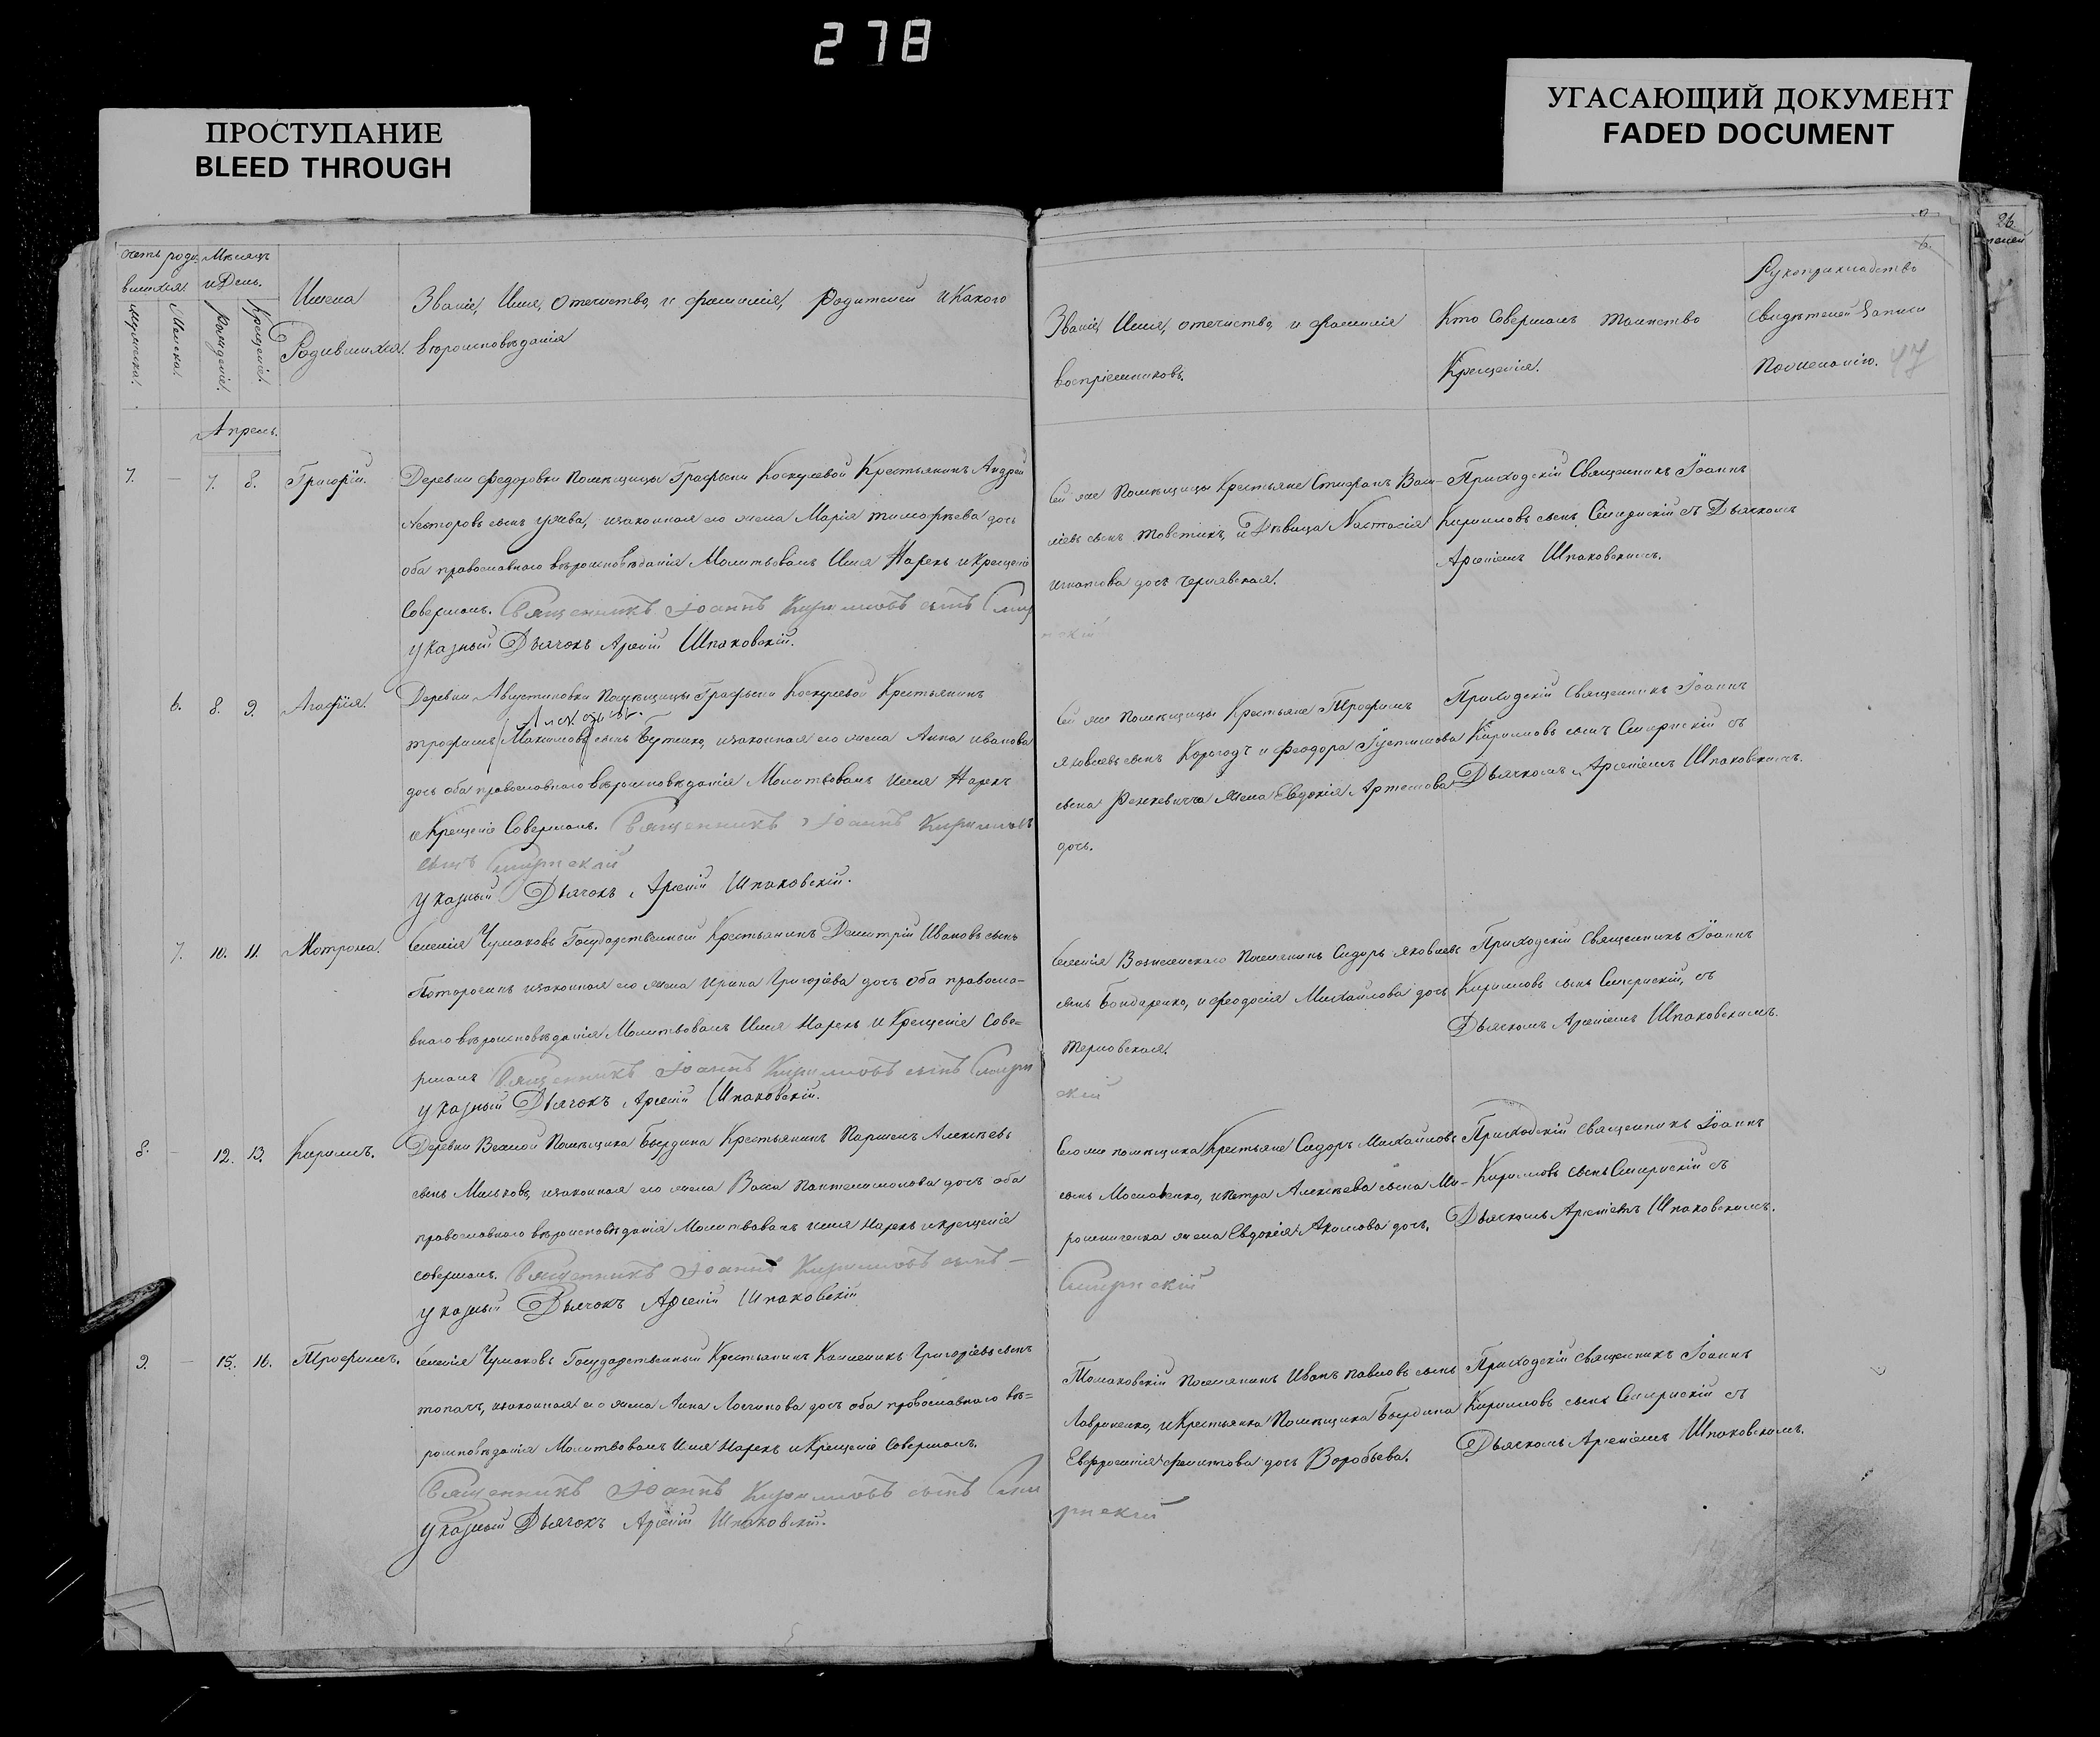 278
ПРОСТУПАНИЕ
BLEED THROUGH
УГАСАЮЩИЙ ДОКУМЕНТ
FADED DOCUMENT
26
Счетъ роди-
вшихся.
Мѣсяцъ
и День.
мужеска.
Женска.
Рожденія.
Крещенія.
Имена
Родившихся.
Званіе, Имя, Отечество, и фамилія, Родителей и Какого
вѣроисповѣданія
Званіе, Имя, отечество, и фамилія
воспріемниковъ.
Кто Совершалъ таинство
Крещенія.
Рукоприкладство
свидѣтелей Записи
По желанію. 47
Апрель.
7. – 7. 8. Григорій.
Деревни Федоровки помѣщицы Графыни Крестьянинъ Андрей
Несторовъ сынъ изаконная его жена Марія тимофѣева дочь
оба православнаго вѣроисповѣданія Молитвовалъ Имя Нарекъ и Крещеніе
Совершалъ. Священникъ Іоаннъ Кирилловъ сынъ
указный Дьячокъ Арсеній Шпаковскій.
Сей же помѣщицы Крестьяне Стефанъ Васи-
ліевъ сынъ Товстикъ, и Дѣвица Настасія
игнатова дочь чернявская.
Приходскій Священникъ Іоаннъ
Кирилловъ сынъ съ Дьячкомъ
Арсеніемъ Шпаковскимъ.
6. 8. 9. Агафія.
Деревни Августиновки Помѣщицы Графыни Крестьянинъ
трофимъ Максимовъ сынъ Бутенко, изаконная его жена Анна иванова
дочь оба православнаго вѣроисповѣданія Молитвовалъ имя Нарекъ
и Крещеніе Совершалъ. Священникъ Іоаннъ Кирилловъ
сынъ
указный Дьячокъ Арсеній Шпаковскій.
Сей же помѣщицы Крестьяне Трофимъ
яковлевъ сынъ Корогодъ и феодора Густинова
сына жена Евдокія Артемова
дочь.
Приходскій Священникъ Іоаннъ
Кирилловъ сынъ съ
Дьячкомъ Арсеніемъ Шпаковскимъ.
7. 10. 11. Мотрона.
Селенія Чумаковъ Государственный Крестьянинъ Димитрій Ивановъ сынъ
изаконная его жена Ирина Григорієва дочь оба правосла-
внаго вѣроисповѣданія Молитвовалъ Имя Нарекъ и Крещеніе Сове=
ршалъ Священникъ Іоаннъ Кирилловъ сынъ
указный Дьячокъ Арсеній Шпаковскій.
Селенія Вознесенскаго Поселянинъ Сидоръ яковлевъ
сынъ Бондаренко, и феодосія Михайлова дочь
терновская.
скій
Приходскій Священникъ Іоаннъ
Кирилловъ сынъ съ
Дьячкомъ Арсеніемъ Шпаковскимъ.
8. – 12. 13. Кирилъ.
Деревни Помѣщика Крестьянинъ Парменъ Алексѣевъ
сынъ изаконная его жена Васса Пантелимонова дочь оба
православнаго вѣроисповѣданія Молитвовалъ имя Нарекъ и крещеніе
совершалъ. Священникъ Іоаннъ Кирилловъ сынъ –
указный Дьячокъ Арсеній Шпаковскій
Сего же помѣщика Крестьяне Сидоръ Михайловъ
сынъ и Петра Алексѣева сына Ми-
рошниченка жена Евдокія Акимова дочь.
Приходскій Священникъ Іоаннъ
Кирилловъ сынъ съ
Дьячкомъ Арсеніемъ Шпаковскимъ.
9. – 15. 16. Трофимъ.
Селенія Чумаковъ Государственный Крестьянинъ Григоріевъ сынъ
изаконная его жена Анна Логинова дочь оба православнаго вѣ=
роисповѣданія Молитвовалъ Имя Нарекъ и Крещеніе Совершалъ.
Священникъ Іоаннъ Кирилловъ сынъ
указный Дьячокъ Арсеній Шпаковскій.
Томаковскій Поселянинъ Иванъ павловъ сынъ
Лавриненко, и Крестьянка Помѣщика
Евфросинія дочь Воробьева.
Приходскій Священникъ Іоаннъ
Кирилловъ сынъ съ
Дьячкомъ Арсеніемъ Шпаковскимъ.